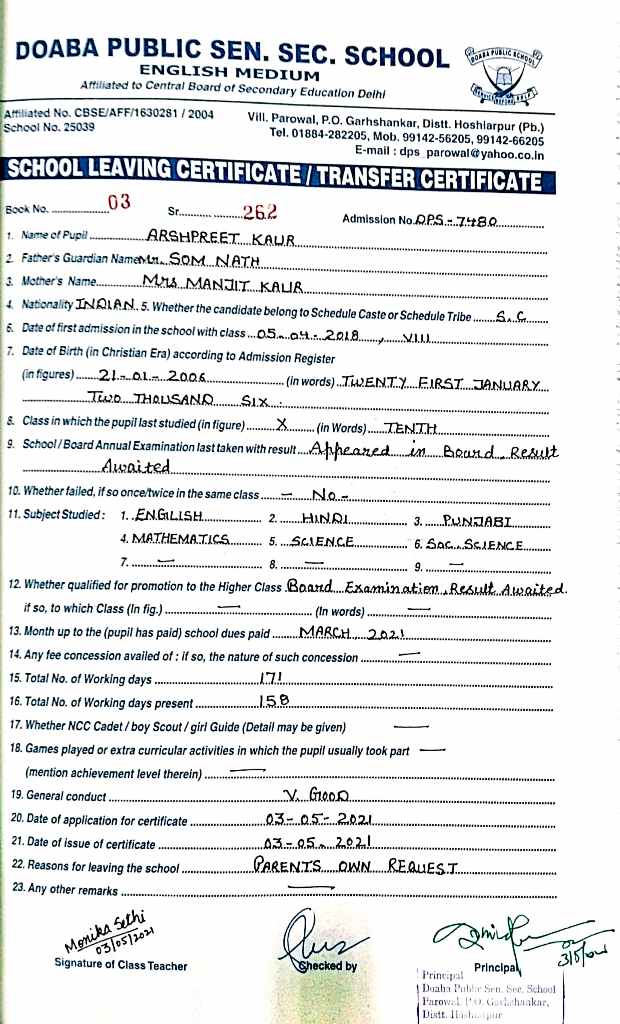 DOABA PUBLIC SEN. SEC. SCHOOL
ENGLISH MEDIUM
Affiliated to Central Board of Secondary Education Delhi
DOABA PUBLIC SCHOOL
Affiliated No. CBSE/AFF/1630281 / 2004
School No. 25039
Vill. Parowal, P.O. Garhshankar, Distt. Hoshiarpur (Pb.)
Tel. 01884-282205, Mob. 99142-56205, 99142-66205
E-mail : dps_parowal@yahoo.co.in
SCHOOL LEAVING CERTIFICATE / TRANSFER CERTIFICATE
Book No. 03 Sr. 262 Admission No. DPS-7480
1. Name of Pupil ARSHPREET KAUR
2. Father's Guardian Name Mr. SOM NATH
3. Mother's Name Mrs MANJIT KAUR
4. Nationality INDIAN 5. Whether the candidate belong to Schedule Caste or Schedule Tribe S.C
6. Date of first admission in the school with class 05-04-2018, VIII
7. Date of Birth (in Christian Era) according to Admission Register
(in figures) 21-01-2006 (in words) TWENTY FIRST JANUARY
TWO THOUSAND SIX.
8. Class in which the pupil last studied (in figure) X (in Words) TENTH
9. School / Board Annual Examination last taken with result Appeared in Board, Result
Awaited
10. Whether failed, if so once/twice in the same class - No -
11. Subject Studied : 1. ENGLISH 2. HINDI 3. PUNJABI
4. MATHEMATICS 5. SCIENCE 6. SOC. SCIENCE
7. — 8. — 9. —
12. Whether qualified for promotion to the Higher Class Board Examination, Result Awaited.
if so, to which Class (In fig.) — (In words) —
13. Month up to the (pupil has paid) school dues paid MARCH 2021
14. Any fee concession availed of : if so, the nature of such concession —
15. Total No. of Working days 171
16. Total No. of Working days present 158
17. Whether NCC Cadet / boy Scout / girl Guide (Detail may be given) —
18. Games played or extra curricular activities in which the pupil usually took part —
(mention achievement level therein) —
19. General conduct V. GOOD
20. Date of application for certificate 03-05-2021
21. Date of issue of certificate 03-05-2021
22. Reasons for leaving the school PARENTS OWN REQUEST
23. Any other remarks —
Monika Sethi
03/05/2021
Signature of Class Teacher
Checked by
Principal
Principal
Doaba Public Sen. Sec. School
Parowal, P.O. Garhshankar,
Distt. Hoshiarpur